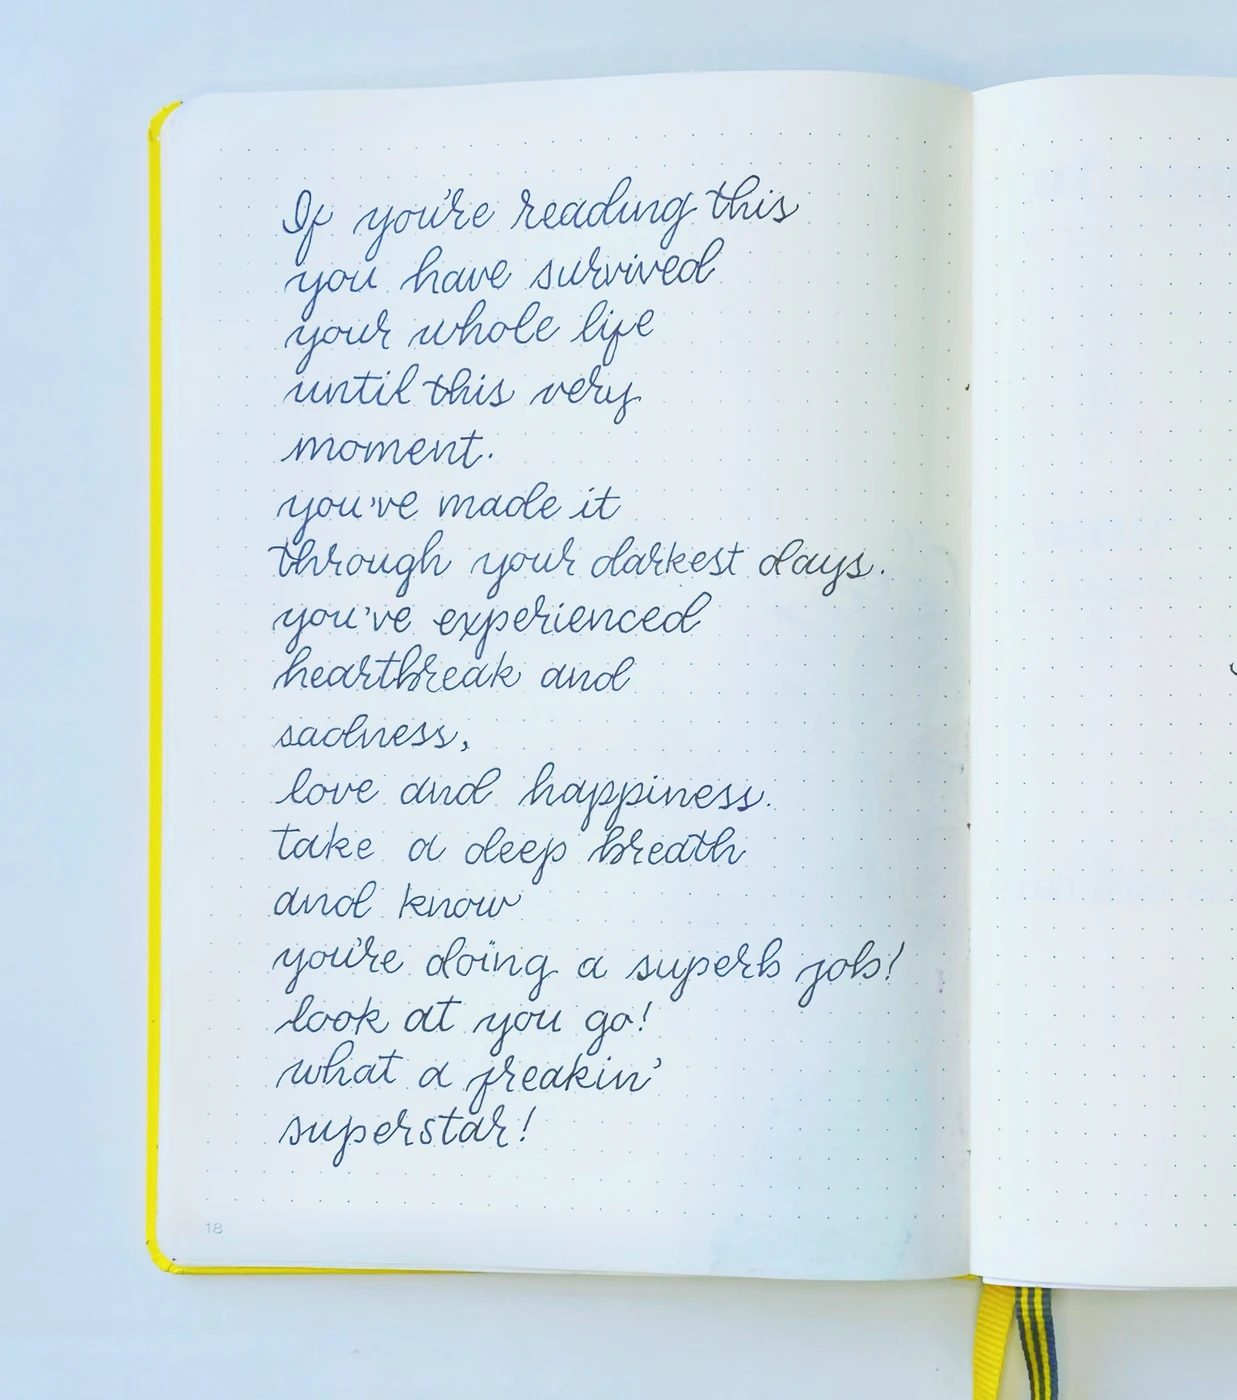 If you're reading this
you have survived
your whole life
until this very
moment.
you've made it
through your darkest days.
you've experienced
heartbreak and
sadness,
love and happiness.
take a deep breath
and know
you're doing a superb job!
look at you go!
what a freakin'
superstar!
18